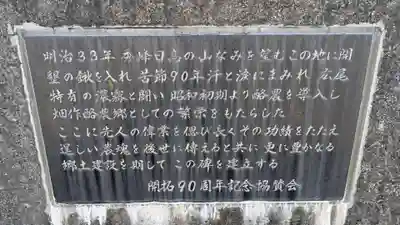 明治33年 秀峰日高の山なみを望むこの地に開
墾の鍬を入れ 苦節90年汗と涙にまみれ 広尾
特有の濃霧と闘い 昭和初期より酪農を導入し
畑作酪農郷としての繁栄をもたらした
ここに先人の偉業を偲び長くその功績をたたえ
逞しい農魂を後世に伝えると共に 更に豊かなる
郷土建設を期して この碑を建立する
開拓90周年記念協賛会